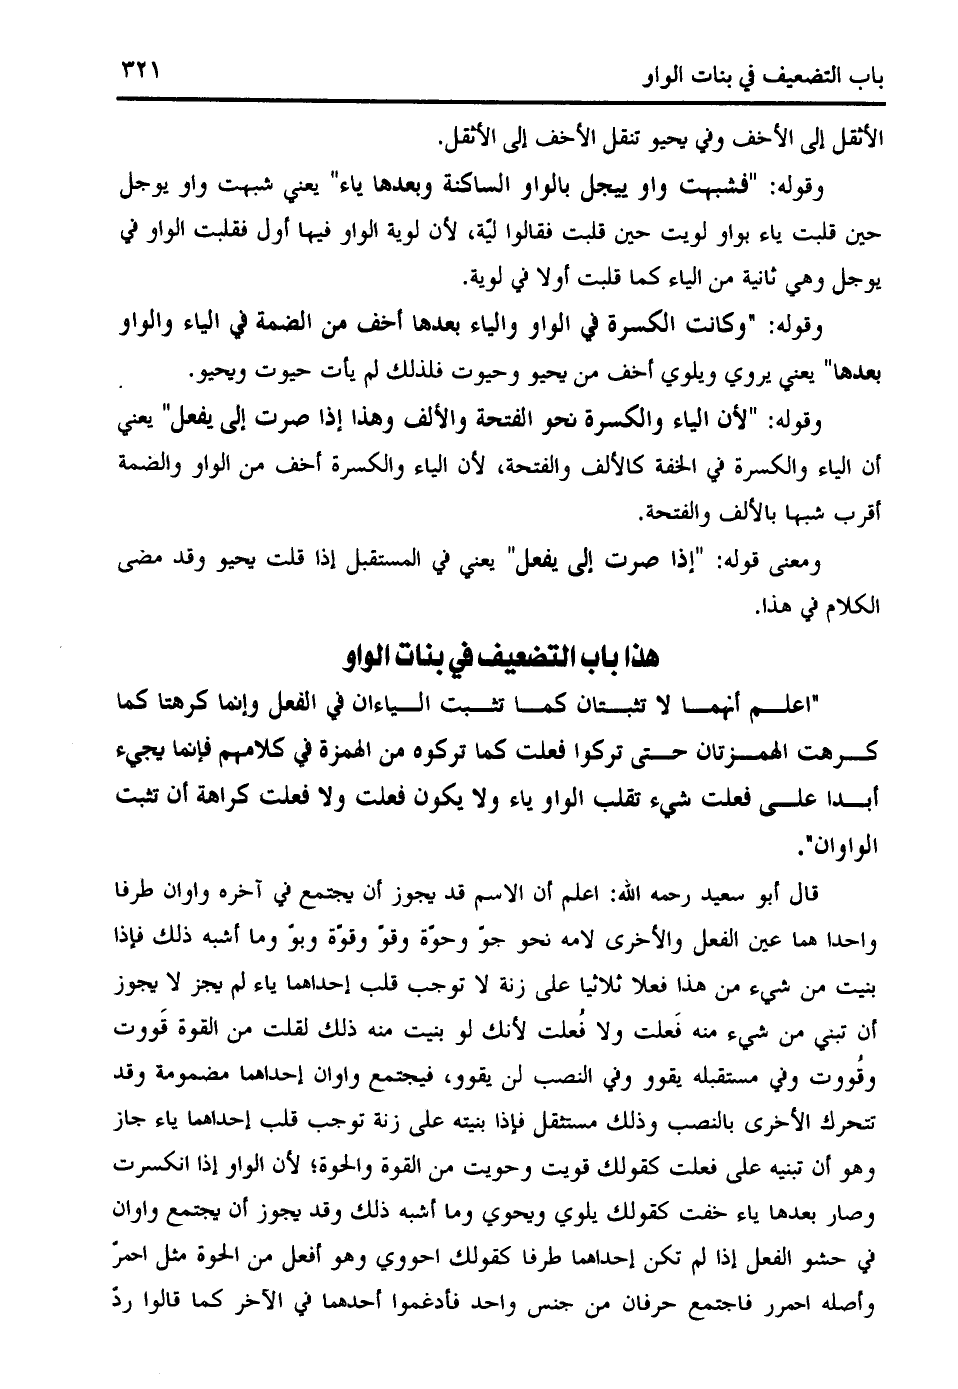 باب التضعيف في بنات الواو
٣٢١
الأثقل إلى الأخف وفي يحيو تنقل الأخف إلى الأثقل.
وقوله: "فشبهت واو ييجل بالواو الساكنة وبعدها ياء" يعني شبهت واو يوجل
حين قلبت ياء بواو لويت حين قلبت فقالوا ليّة، لأن لوية الواو فيها أول فقلبت الواو في
يوجل وهي ثانية من الياء كما قلبت أولا في لوية.
وقوله: "وكانت الكسرة في الواو والياء بعدها أخف من الضمة في الياء والواو
بعدها" يعني يروي ويلوي أخف من يحيو وحيوت فلذلك لم يأت حيوت ويحيو.
وقوله: "لأن الياء والكسرة نحو الفتحة والألف وهذا إذا صرت إلى يفعل" يعني
أن الياء والكسرة في الخفة كالألف والفتحة، لأن الياء والكسرة أخف من الواو والضمة
أقرب شبها بالألف والفتحة.
ومعنى قوله: "إذا صرت إلى يفعل" يعني في المستقبل إذا قلت يحيو وقد مضى
الكلام في هذا.
هذا باب التضعيف في بنات الواو
"اعلـــم أنهمـــا لا تثبـــتان كمـــا تثـــبت الـــياءان في الفعل وإنما كرهتا كما
كـــرهت الهمـــزتان حـــتى تركوا فعلت كما تركوه من الهمزة في كلامهم فإنما يجيء
أبـــدا علـــى فعلت شيء تقلب الواو ياء ولا يكون فعلت ولا فعلت كراهة أن تثبت
الواوان".
قال أبو سعيد رحمه الله: اعلم أن الاسم قد يجوز أن يجتمع في آخره واوان طرفا
واحدا هما عين الفعل والأخرى لامه نحو جوّ وحوّة وقوّ وقوّة وبوّ وما أشبه ذلك فإذا
بنيت من شيء من هذا فعلا ثلاثيا على زنة لا توجب قلب إحداهما ياء لم يجز لا يجوز
أن تبني من شيء منه فَعلت ولا فُعلت لأنك لو بنيت منه ذلك لقلت من القوة قَووت
وقُووت وفي مستقبله يقوو وفي النصب لن يقوو، فيجتمع واوان إحداهما مضمومة وقد
تتحرك الأخرى بالنصب وذلك مستثقل فإذا بنيته على زنة توجب قلب إحداهما ياء جاز
وهو أن تبنيه على فعلت كقولك قويت وحويت من القوة والحوة؛ لأن الواو إذا انكسرت
وصار بعدها ياء خفت كقولك يلوي ويحوي وما أشبه ذلك وقد يجوز أن يجتمع واوان
في حشو الفعل إذا لم تكن إحداهما طرفا كقولك احووي وهو أفعل من الحوة مثل احمرّ
وأصله احمرر فاجتمع حرفان من جنس واحد فأدغموا أحدهما في الآخر كما قالوا ردّ